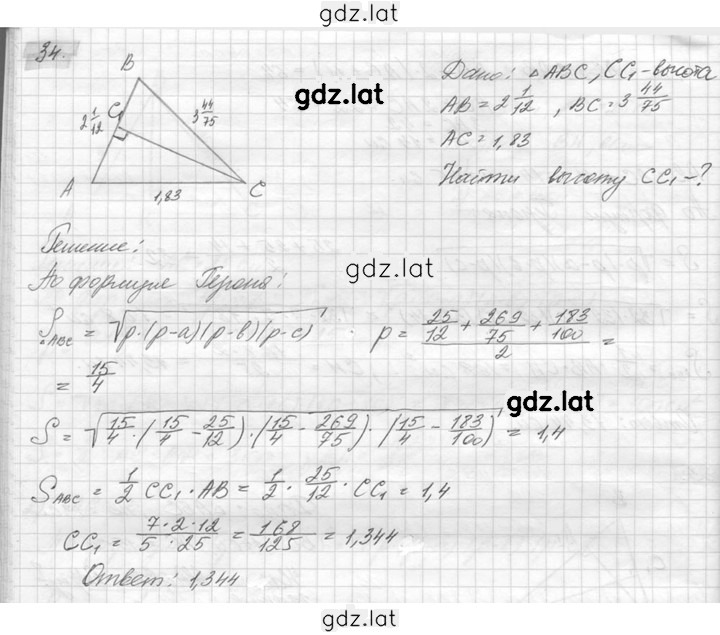 gdz.lat
34.
B
Дано: △ABC, CC₁-высота
gdz.lat
AB = 2 1/12, BC = 3 44/75
C₁
2 1/12
3 44/75
AC = 1,83
A
1,83
C
Найти высоту CC₁-?
Решение:
По формуле Герона:
gdz.lat
S_ABC = √(p·(p-a)(p-b)(p-c)) p = (25/12 + 269/75 + 183/100)/2 =
= 15/4
gdz.lat
S = √(15/4·(15/4 - 25/12)·(15/4 - 269/75)·(15/4 - 183/100)) = 1,4
S_ABC = 1/2 CC₁·AB = 1/2 · 25/12 · CC₁ = 1,4
CC₁ = (7·2·12)/(5·25) = 168/125 = 1,344
Ответ: 1,344
gdz.lat